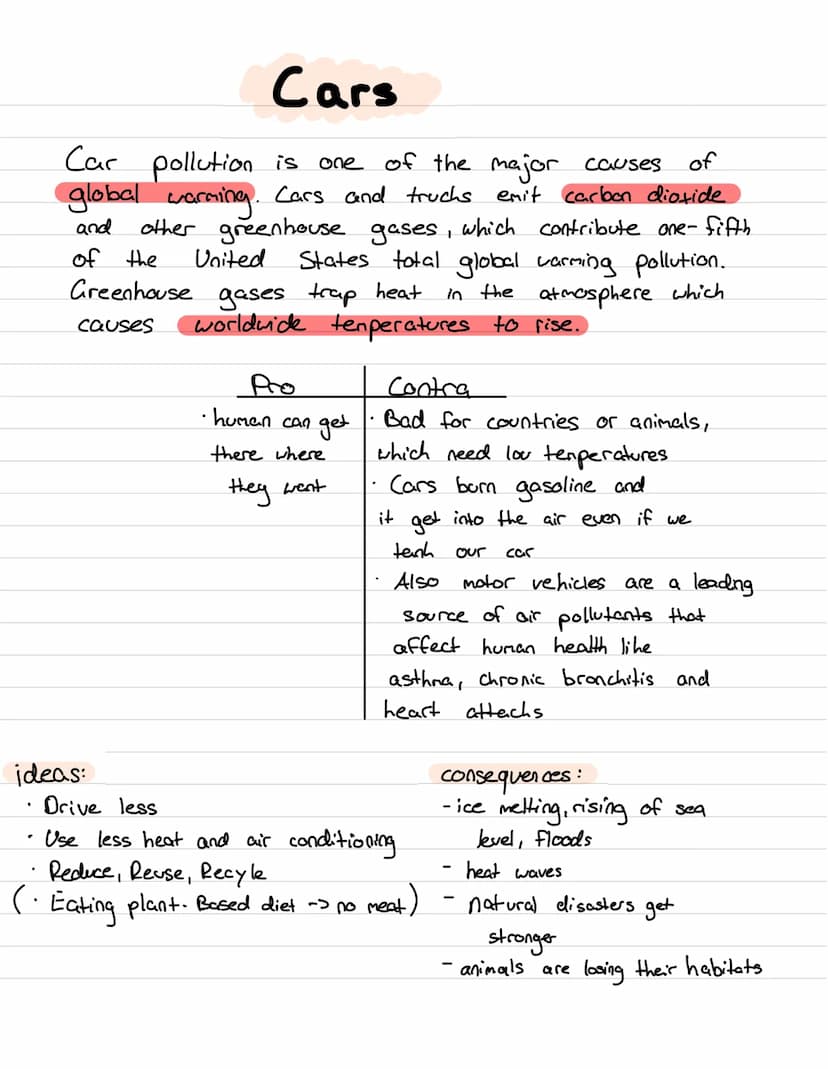 Cars
Car pollution is one of the major causes of
global warming. Cars and trucks emit carbon dioxide
and other greenhouse gases, which contribute one-fifth
of the United States total global warming pollution.
Greenhouse gases trap heat in the atmosphere which
causes worldwide temperatures to rise.
Pro
· human can get
there where
they want
Contra
· Bad for countries or animals,
which need low temperatures
· Cars burn gasoline and
it get into the air even if we
our car
· Also motor vehicles are a leading
source of air pollutants that
affect human health like
asthma, chronic bronchitis and
heart attacks
ideas:
· Drive less
· Use less heat and air conditioning
· Reduce, Reuse, Recyle
(· Eating plant-Based diet -> no meat)
consequences:
- ice melting, rising of sea
level, floods
- heat waves
- natural disasters get
stronger
- animals are losing their habitats